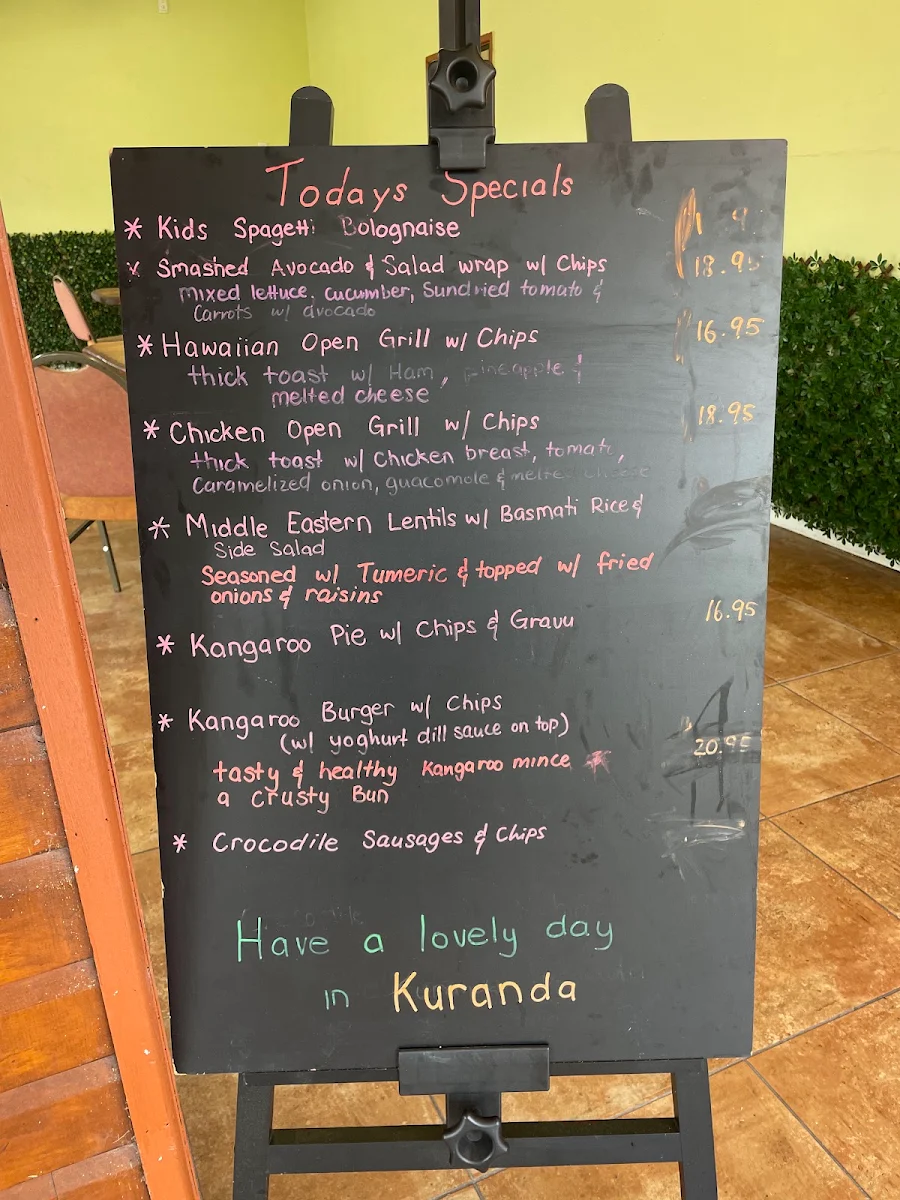 Todays Specials
* Kids Spagetti Bolognaise
* Smashed Avocado & Salad wrap w/ Chips 18.95
mixed lettuce, cucumber, Sundried tomato &
Carrots w/ avocado
* Hawaiian Open Grill w/ Chips 16.95
thick toast w/ Ham, pineapple &
melted cheese
* Chicken Open Grill w/ Chips 18.95
thick toast w/ Chicken breast, tomato,
Caramelized onion, guacomole & melted cheese
* Middle Eastern Lentils w/ Basmati Rice &
Side Salad
Seasoned w/ Tumeric & topped w/ fried
onions & raisins
* Kangaroo Pie w/ Chips & Gravy 16.95
* Kangaroo Burger w/ Chips
(w/ yoghurt dill sauce on top) 20.95
tasty & healthy Kangaroo mince
a Crusty Bun
* Crocodile Sausages & Chips
Have a lovely day
in Kuranda